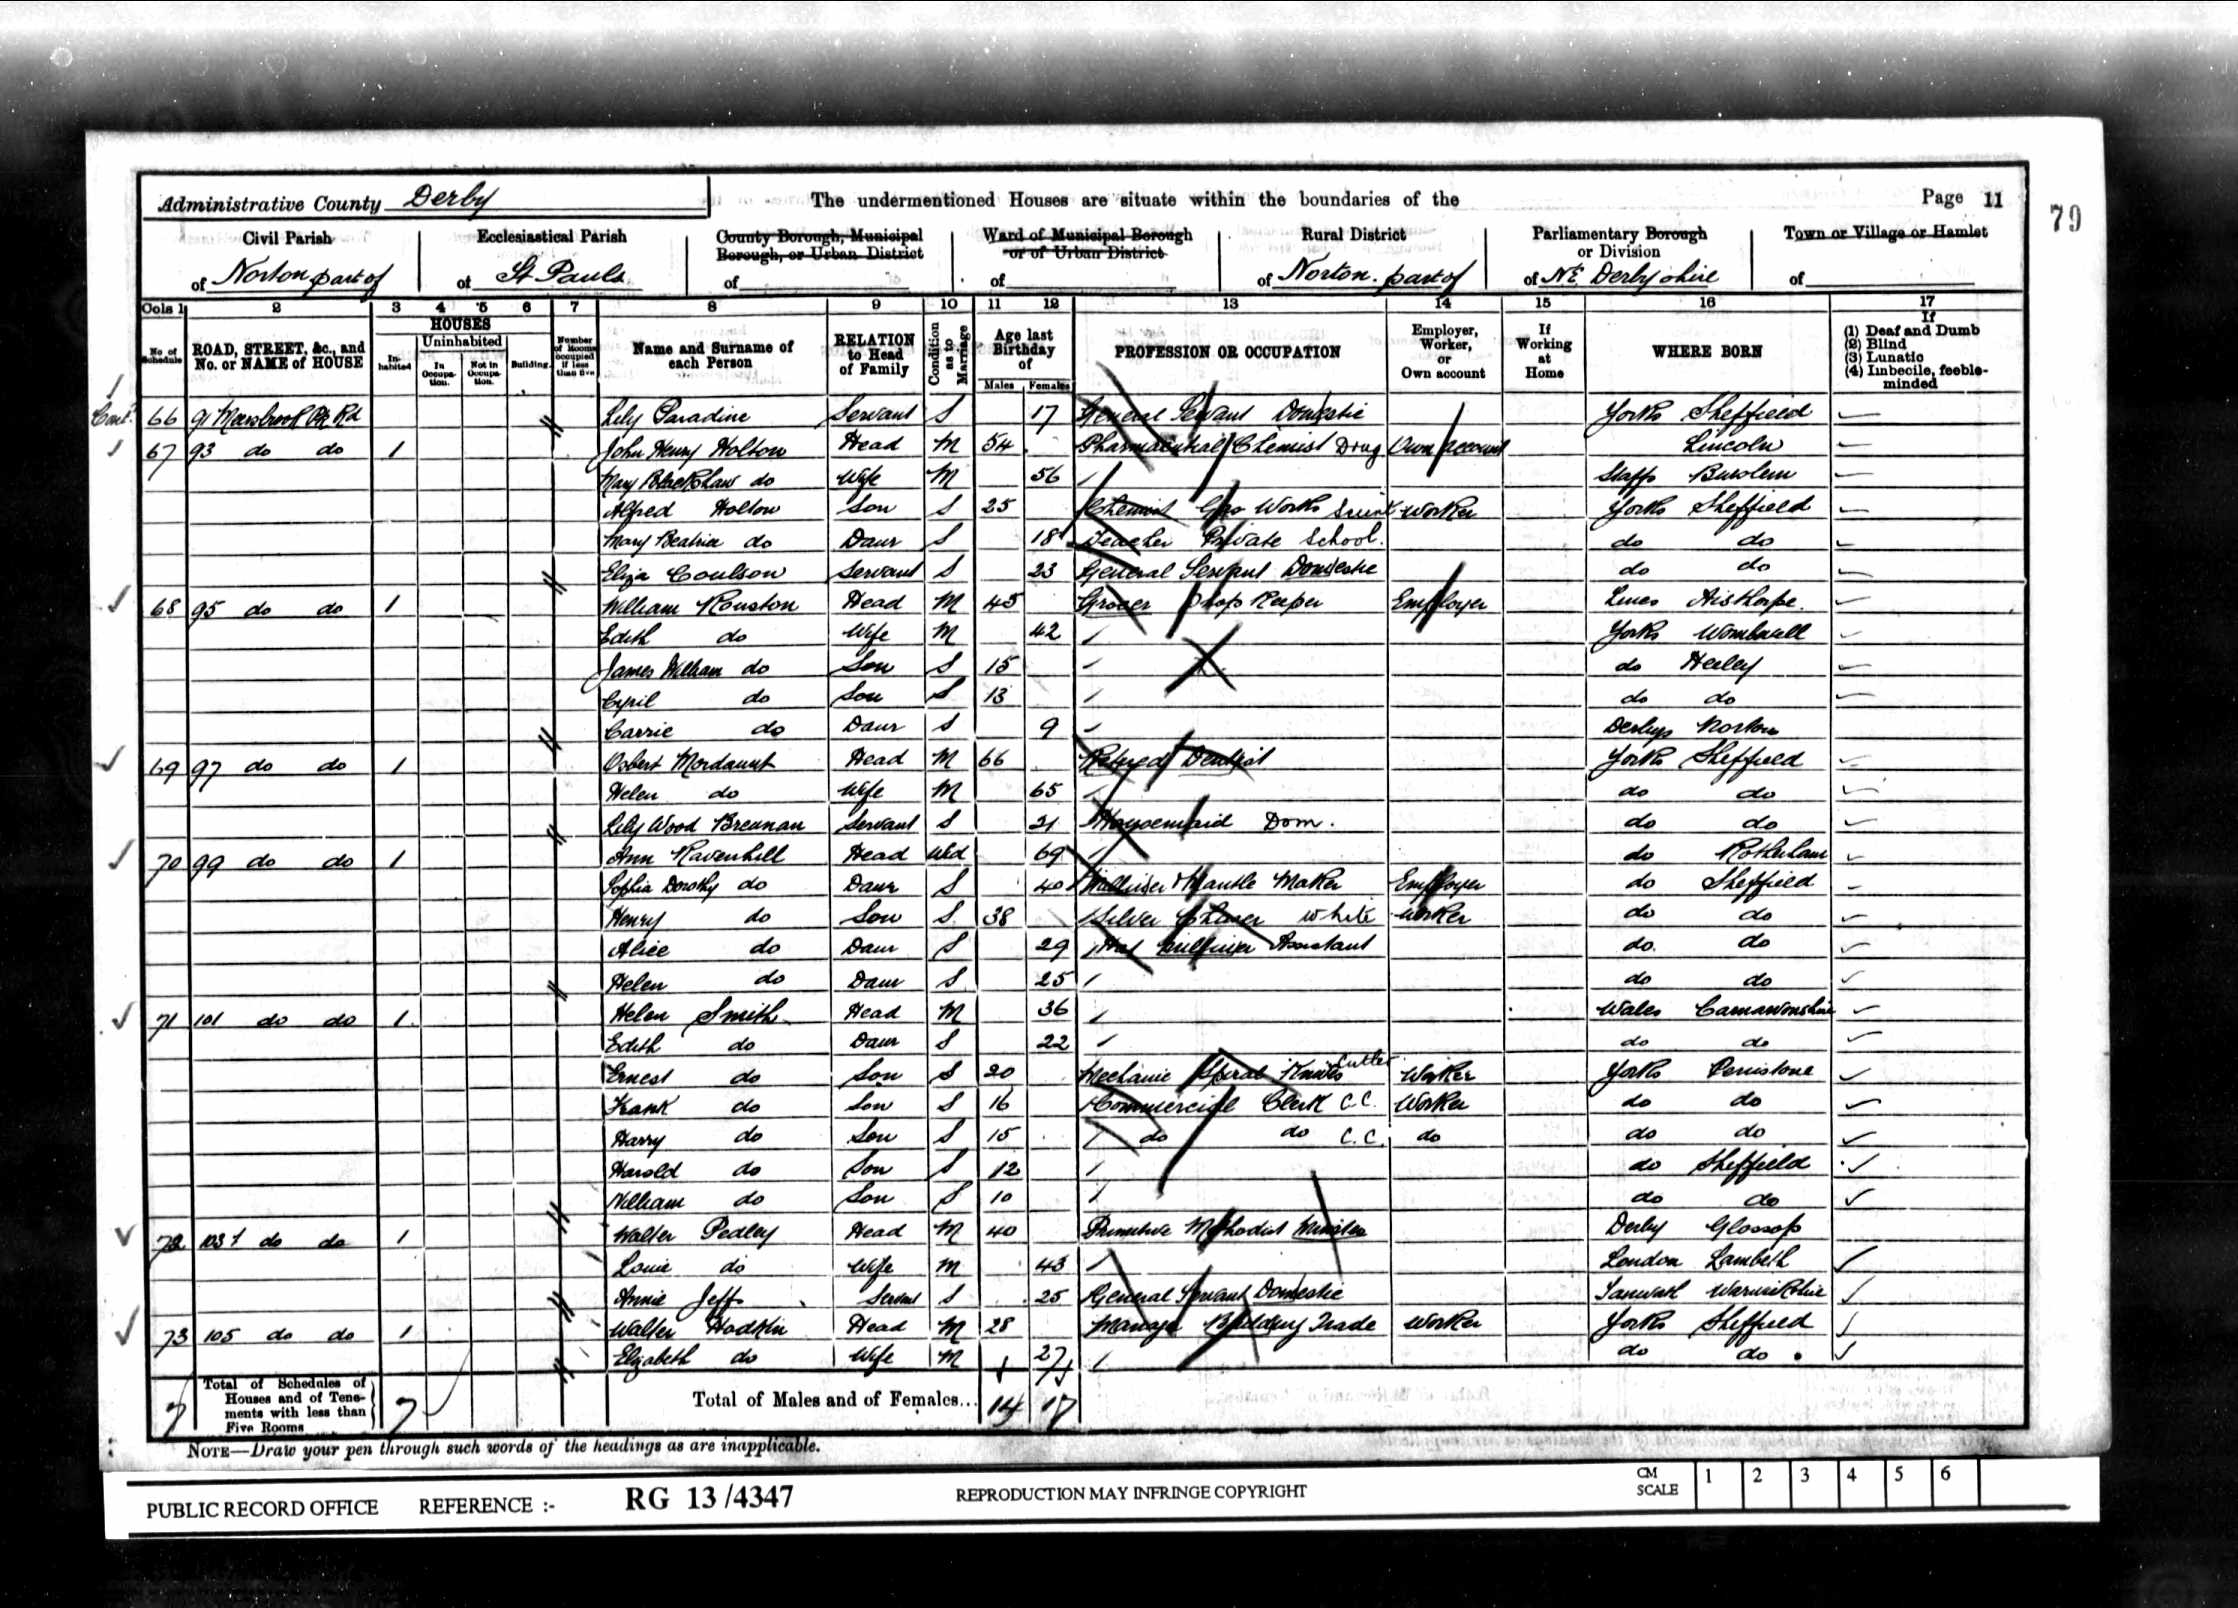 Administrative County Derby
The undermentioned Houses are situate within the boundaries of the
Page 11
79
Civil Parish
of Norton part of
Ecclesiastical Parish
of St Pauls
County Borough, Municipal
Borough, or Urban District
of
Ward of Municipal Borough
or of Urban District
of
Rural District
of Norton part of
Parliamentary Borough
or Division
of N.E. Derbyshire
Town or Village or Hamlet
of
Cols 1 2 3 4 5 6 7 8 9 10 11 12 13 14 15 16 17
No of Schedule
ROAD, STREET, &c., and No. or NAME of HOUSE
HOUSES
In-habited
Uninhabited
In Occupa-tion.
Not in Occupa-tion.
Building.
Number of Rooms occupied if less than five
Name and Surname of each Person
RELATION to Head of Family
Condition as to Marriage
Age last Birthday of
Males Females
PROFESSION OR OCCUPATION
Employer, Worker, or Own account
If Working at Home
WHERE BORN
If
(1) Deaf and Dumb
(2) Blind
(3) Lunatic
(4) Imbecile, feeble-minded
66 91 Meersbrook Pk Rd Lily Paradine Servant S 17 General Servant Domestic Yorks Sheffield
67 93 do do 1 John Henry Holton Head M 54 Pharmaceutical Chemist Drug Own account Lincoln
Mary Blackshaw do Wife M 56 Staffs Burslem
Alfred Holton Son S 25 Chemist Gas Works Worker Yorks Sheffield
Mary Beatrice do Daur S 18 Teacher Private School. do do
Eliza Coulson Servant S 23 General Servant Domestic do do
68 95 do do 1 William Rouston Head M 45 Grocer Shop Keeper Employer Lincs Aisthorpe
Edith do Wife M 42 Yorks Wombwell
James William do Son S 15 do Heeley
Cyril do Son S 13 do do
Carrie do Daur S 9 Derbys Norton
69 97 do do 1 Osbert Mordaunt Head M 66 Retired Dentist Yorks Sheffield
Helen do Wife M 65 do do
Lily Wood Brennan Servant S 21 Housemaid Dom. do do
70 99 do do 1 Ann Ravenhill Head Wid 69 do Rotherham
Sophia Dorothy do Daur S 40 Milliner & Mantle Maker Employer do Sheffield
Henry do Son S 38 Silver Chaser White Worker do do
Alice do Daur S 29 Hat Milliner Assistant do do
Helen do Daur S 25 do do
71 101 do do 1 Helen Smith Head M 36 Wales Carnarvonshire
Edith do Daur S 22 do do
Ernest do Son S 20 Mechanic Spiral Knives Cutler Worker Yorks Penistone
Frank do Son S 16 Commercial Clerk C.C. Worker do do
Harry do Son S 15 do do C.C. do do do
Harold do Son S 12 do Sheffield
William do Son S 10 do do
72 103 do do 1 Walter Pedley Head M 40 Primitive Methodist Minister Derby Glossop
Louie do Wife M 43 London Lambeth
Annie Jeffs Servant S 25 General Servant Domestic Warwickshire
73 105 do do 1 Walter Hodkin Head M 28 Manager Building Trade Worker Yorks Sheffield
Elizabeth do Wife M 27 do do
7 Total of Schedules of Houses and of Tene-ments with less than Five Rooms 7 Total of Males and of Females... 14 17
NOTE—Draw your pen through such words of the headings as are inapplicable.
PUBLIC RECORD OFFICE REFERENCE :- RG 13/4347 REPRODUCTION MAY INFRINGE COPYRIGHT CM SCALE 1 2 3 4 5 6